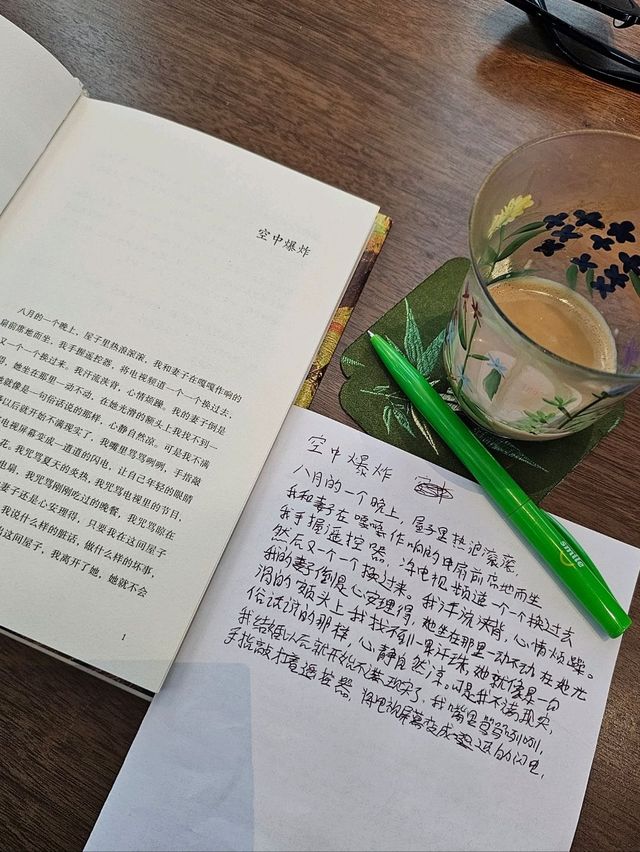 空中爆炸
八月的一个晚上，屋子里热浪滚滚，我和妻子在嘎嘎作响的
扇前席地而坐，我手握遥控器，将电视频道一个一个换过去，
又一个一个换过来。我汗流浃背，心情烦躁。我的妻子倒是
得，她坐在那里一动不动，在她光滑的额头上我找不到一
她就像是一句俗话说的那样，心静自然凉。可是我不满
以后就开始不满现实了，我嘴里骂骂咧咧，手指敲
电视屏幕变成一道道的闪电，让自己年轻的眼睛
花。我咒骂夏天的炎热，我咒骂电视里的节目，
电扇，我咒骂刚刚吃过的晚餐，我咒骂晾在
妻子还是心安理得，只要我在这间屋子
我说什么样的脏话，做什么样的坏事，
出这间屋子，我离开了她，她就不会
1
空中爆炸
八月的一个晚上，屋子里热浪滚滚，
我和妻子在嘎嘎作响的电扇前席地而坐
我手握遥控器，将电视频道一个一个换过去
然后又一个一个换过来。我汗流浃背，心情烦躁。
我的妻子倒是心安理得，她坐在那里一动不动 在她光
滑的额头上我找不到一颗汗珠，她就像是一句
俗话说的那样，心静自然凉。可是我不满现实，
我结婚以后就开始不满现实了，我嘴里骂骂咧咧，
手指敲打着遥控器，将电视屏幕变成道道的闪电，
smile